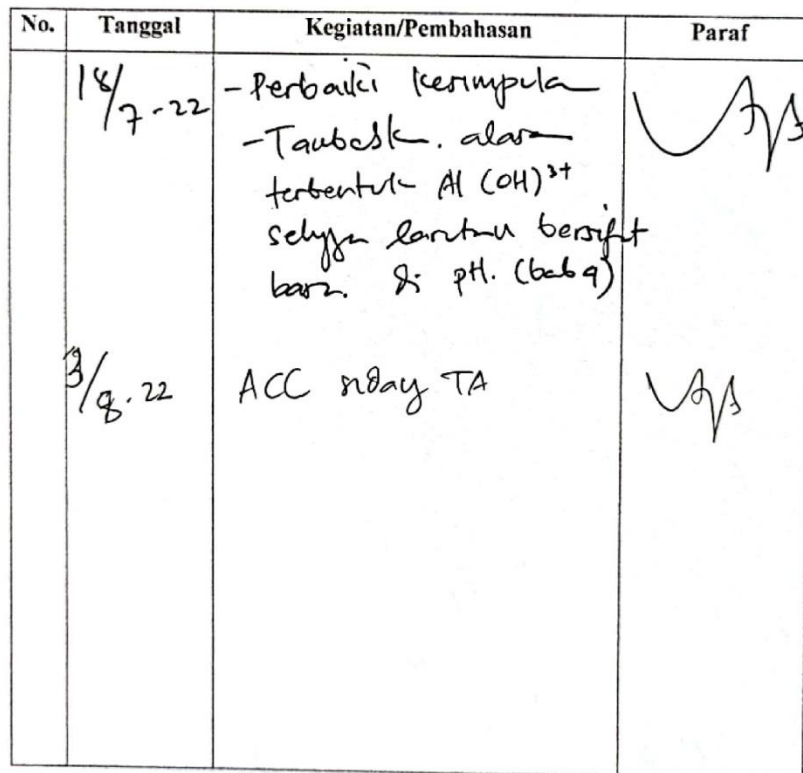 No. Tanggal Kegiatan/Pembahasan Paraf
18/7-22 - Perbaiki kesimpula
- Tambahk. alasa
terbentuk Al (OH)³⁺
sehgga larutan bersifat
basa. di pH. (bab 4)
3/8.22 ACC sidang TA